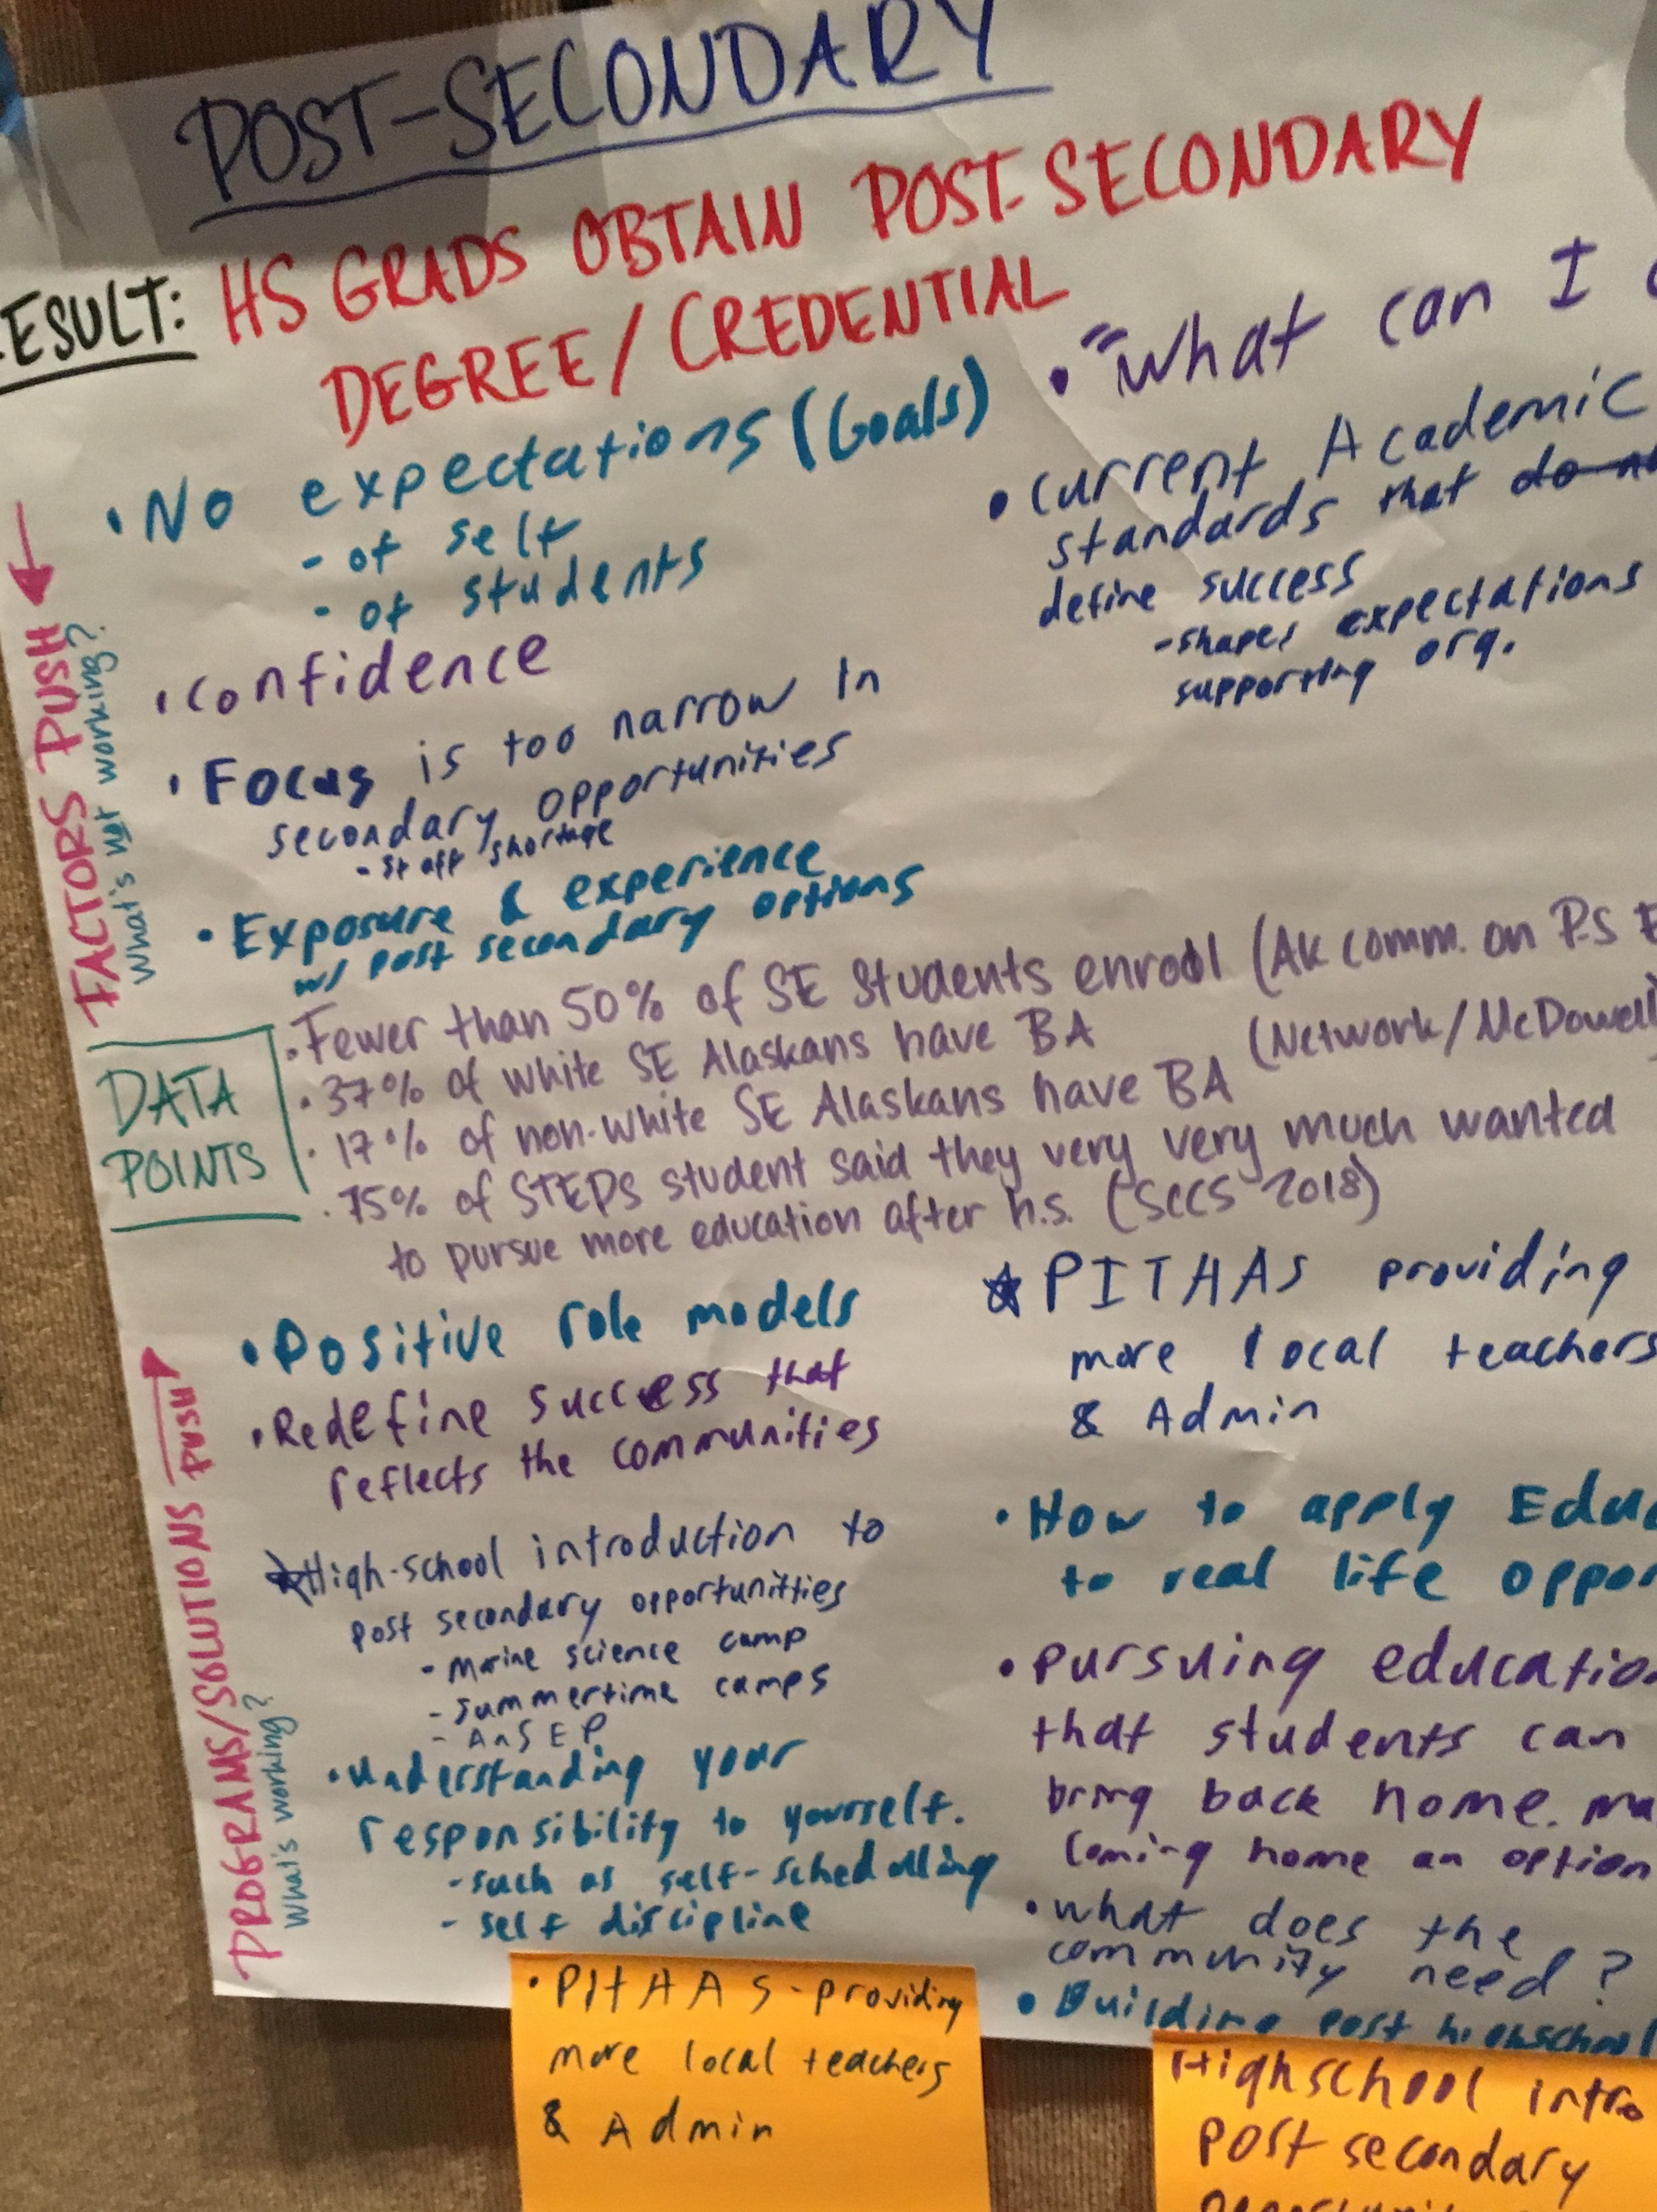 POST-SECONDARY
RESULT: HS GRADS OBTAIN POST-SECONDARY
DEGREE/CREDENTIAL
FACTORS PUSH
What's not working?
• No expectations (Goals)
- of self
- of students
• Confidence
• Focus is too narrow in
secondary opportunities
- staff shortage
• Exposure & experience
w/ post secondary options
• "What can I
• Current Academic
standards that do
define success
- shapes expectations
supporting org.
DATA
POINTS
• Fewer than 50% of SE Students enroll (AK comm. on P-S E
• 37% of white SE Alaskans have BA
• 17% of non-white SE Alaskans have BA (Network/McDowell)
• 75% of STEPS student said they very very much wanted
to pursue more education after h.s. (SCCS 2018)
PROGRAMS/SOLUTIONS PUSH
What's working?
• Positive role models
• Redefine success that
reflects the communities
☆ High-school introduction to
post secondary opportunitties
- marine science camp
- summertime camps
- AnSEP
• Understanding your
responsibility to yourself.
- such as self-schedulling
- self discipline
☆ PITHAS providing
more local teachers
& Admin
• How to apply Edu
to real life oppor
• pursuing educatio
that students can
bring back home. ma
coming home an option
• what does the
community need?
• Building post highschool
• PITHAAS - providing
more local teachers
& Admin
Highschool intro
post secondary